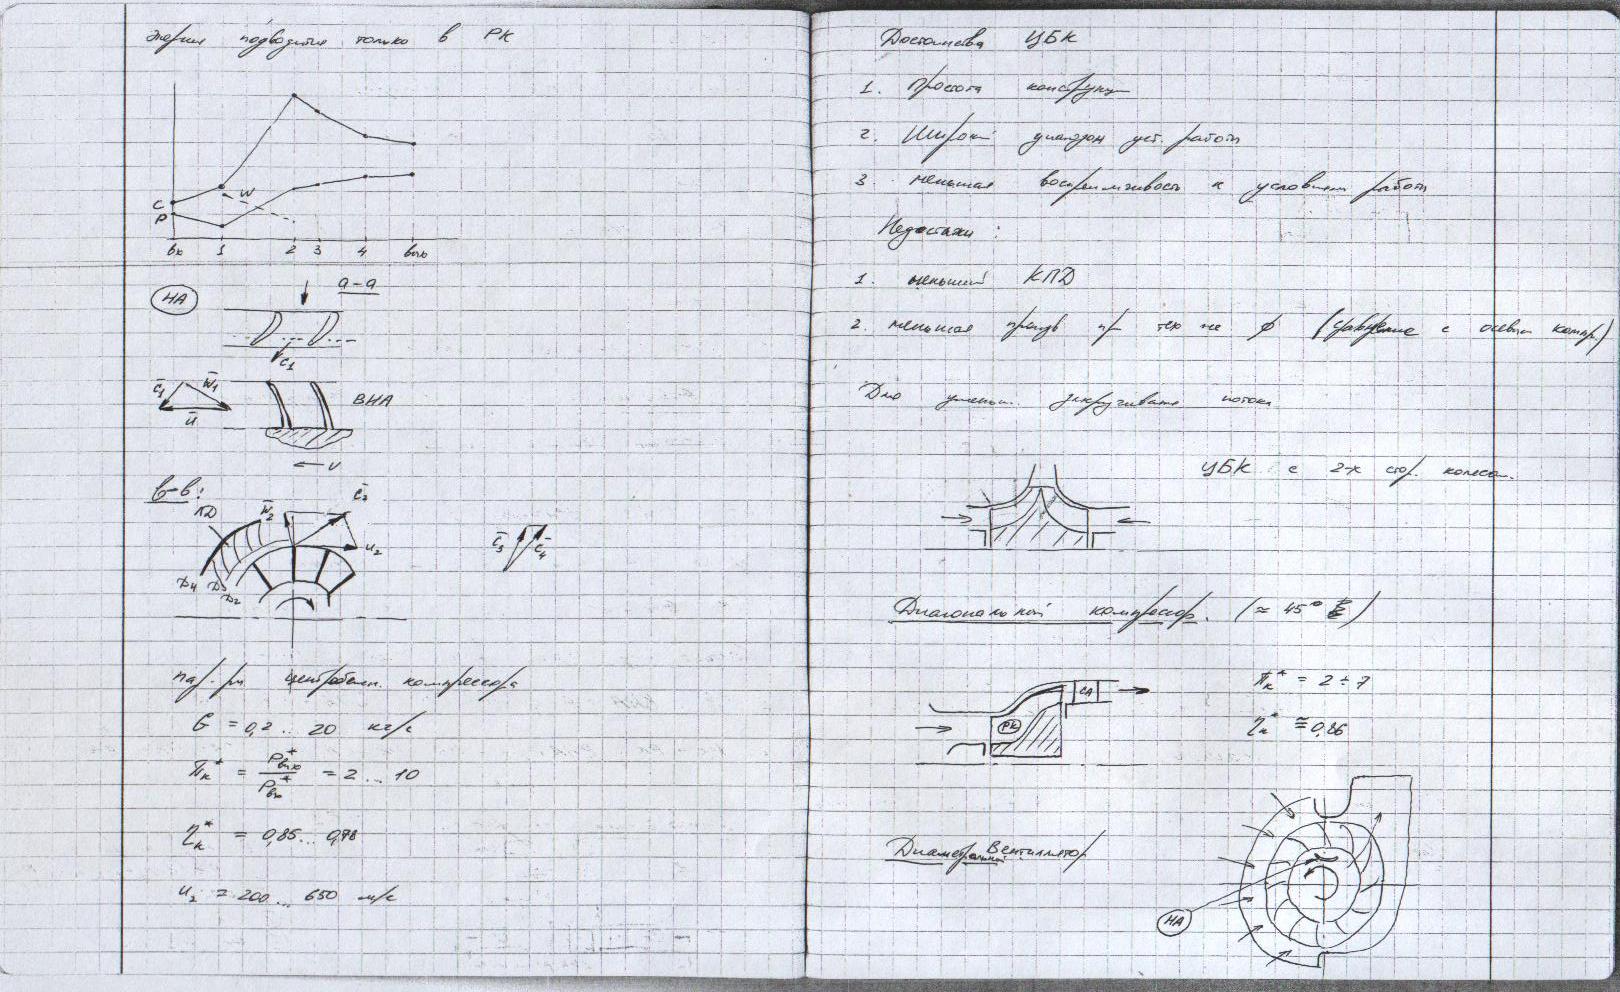 энергия подводится только в РК
C
P
W
вх 1 2 3 4 вых
НА
а-а
C₁
C̄₁ W̄₁
Ū
ВНА
U
в-в:
ЛД W̄₂ C̄₂
U₂
D₄ D₃
D₂
C̄₃ C̄₄
пар-ры центробежн. компрессора
G = 0,2 ... 20 кг/с
πк* = Pвых* / Pвх* = 2 ... 10
ηк* = 0,85 ... 0,78
u₂ = 200 ... 650 м/с
Достоинства ЦБК
1. Простота конструкции
2. Широкий диапазон уст. работы
3. меньшая восприимчивость к условиям работы
Недостатки:
1. меньший КПД
2. меньшая произв при тех же ϕ (сравнение с осевым компр.)
Для уменьш. закручивания потока
ЦБК с 2-х стор. колесом.
Диагональный компрессор. (≈ 45°)
РК
СА
πк* = 2 ÷ 7
ηк* ≅ 0,86
Диаметральный Вентиллятор
НА